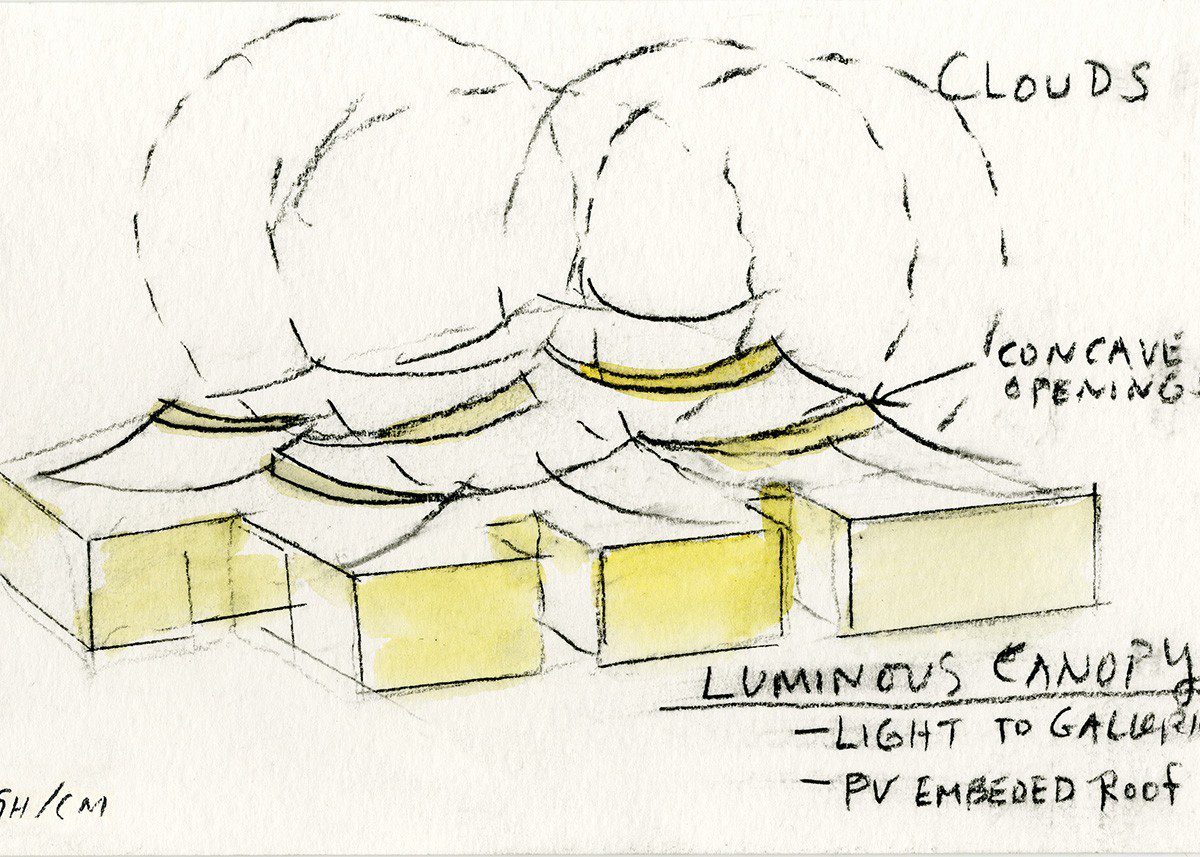 CLOUDS
CONCAVE
OPENING
LUMINOUS CANOPY
–LIGHT TO GALLERI
–PV EMBEDED ROOF
SH/CM